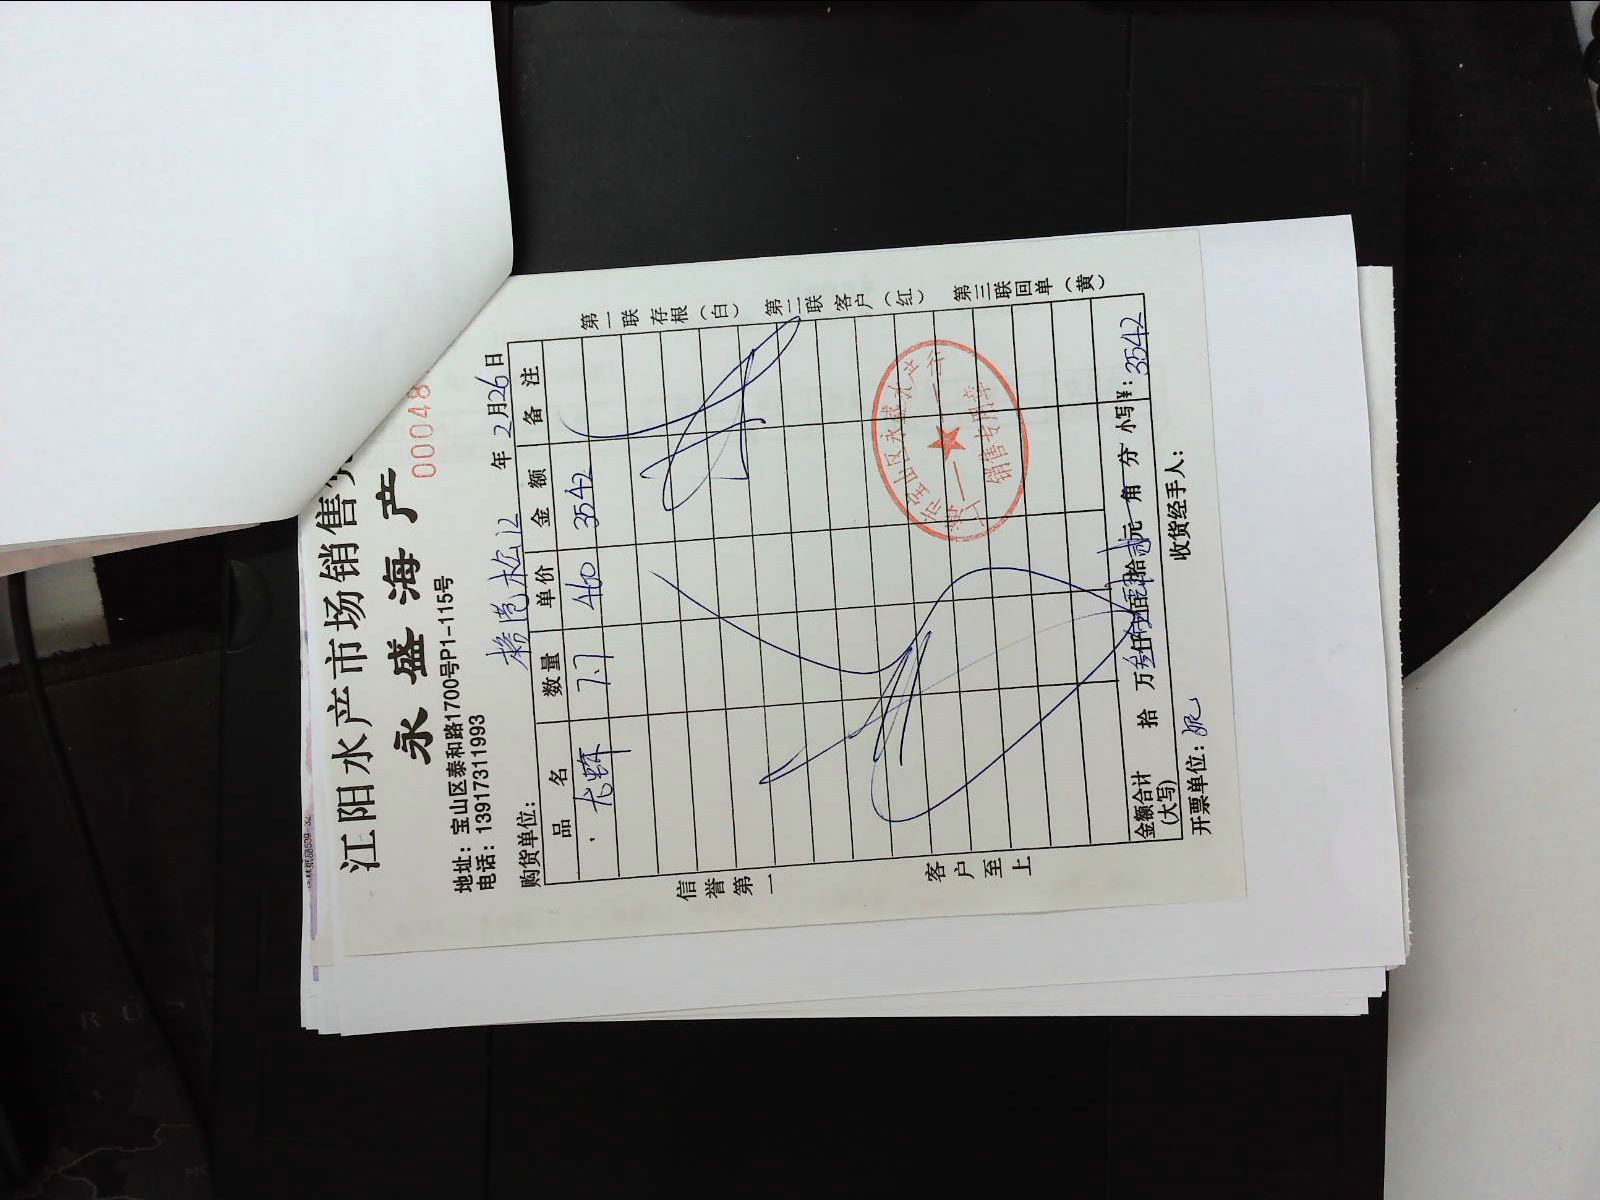 江阳水产市场销售
永盛海产
00048
地址：宝山区泰和路1700号P1-115号
电话：13917311993
购货单位： 年 2 月 26 日
品名 数量 单价 金额 备注
7.7 460 3542
金额合计（大写） 拾 万 叁仟伍佰肆拾贰元 角 分 小写¥：3542
开票单位： 收货经手人：
信誉第一
客户至上
第一联存根（白）
第二联客户（红）
第三联回单（黄）
销售专用章